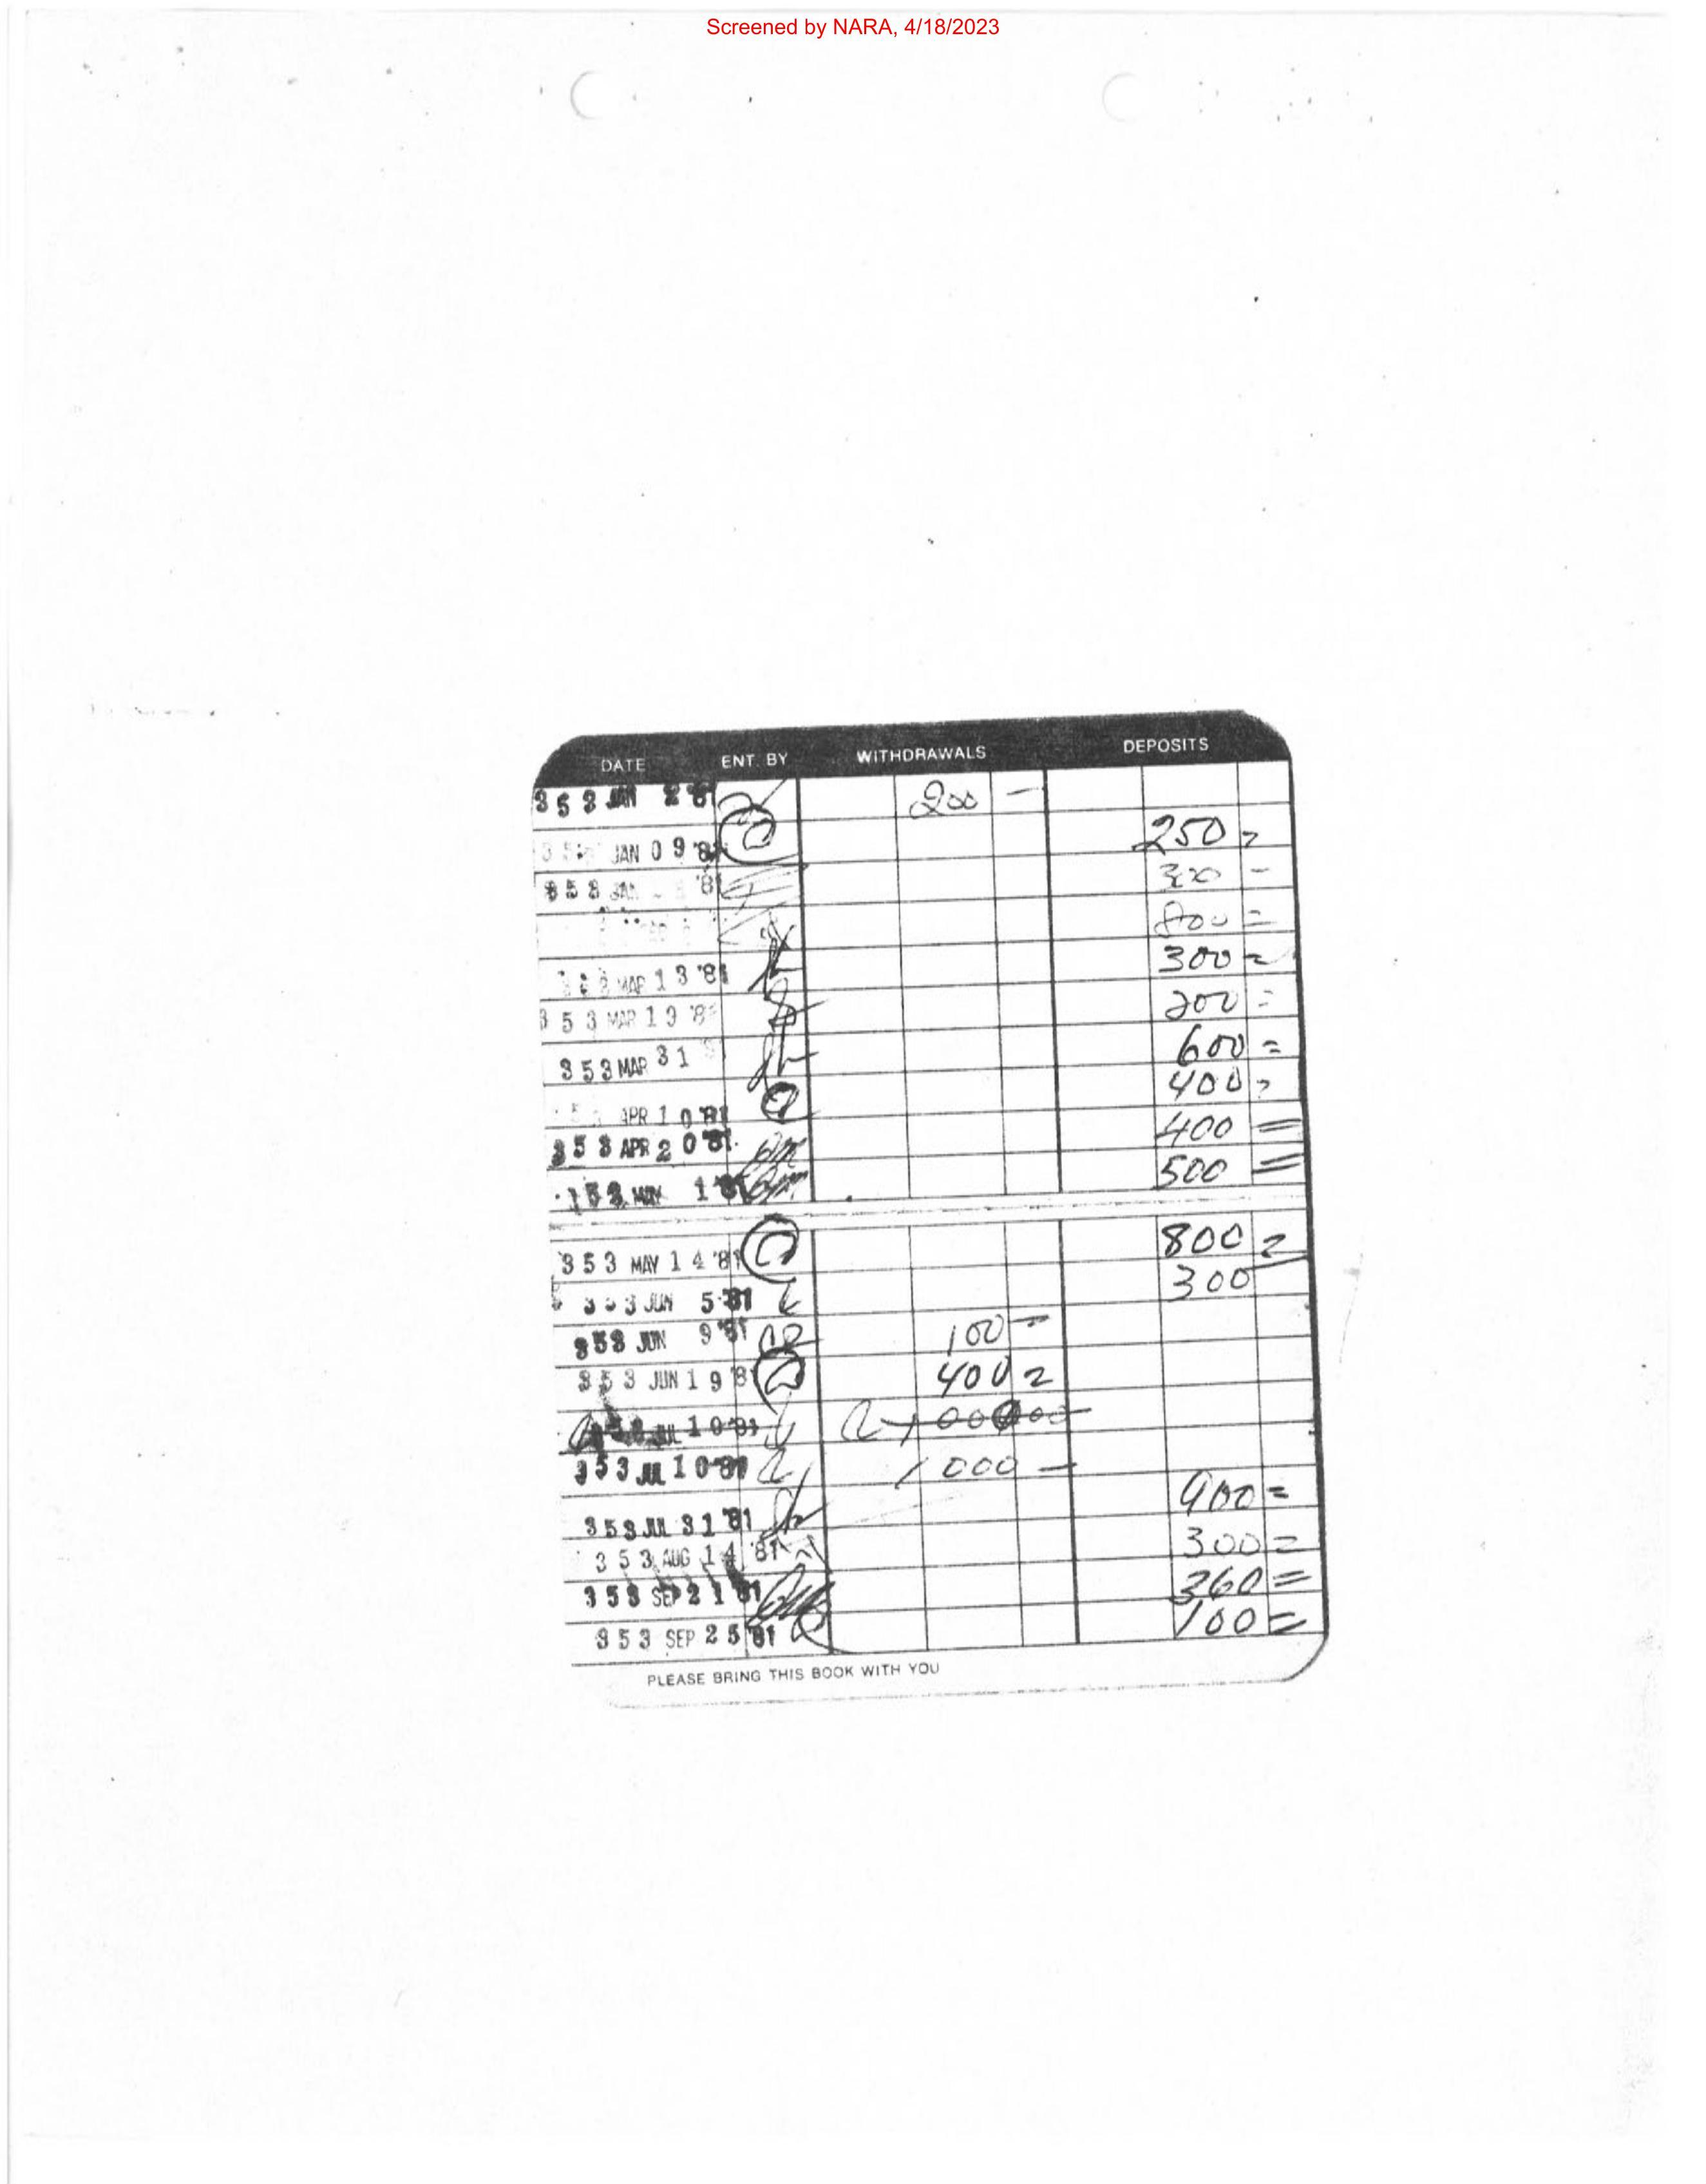 Screened by NARA, 4/18/2023
DATE ENT. BY WITHDRAWALS DEPOSITS
353 JAN 2 '81 200 —
JAN 09 '81 250 =
353 JAN '81 —
800 =
MAR 13 '81 300 =
353 MAR 19 '8 200 =
353 MAR 31 600 =
APR 10 '81 400 =
353 APR 20 '81 400 =
353 MAY 1 '81 500 =
353 MAY 14 '81 800 =
353 JUN 5 '81 300 —
353 JUN 9 '81 100 —
353 JUN 19 '81 400 =
JUL 10 '81
353 JUL 10 '81 1000 —
353 JUL 31 '81 900 =
353 AUG 14 '81 300 =
353 SEP 21 '81 360 =
353 SEP 25 '81 100 =
PLEASE BRING THIS BOOK WITH YOU